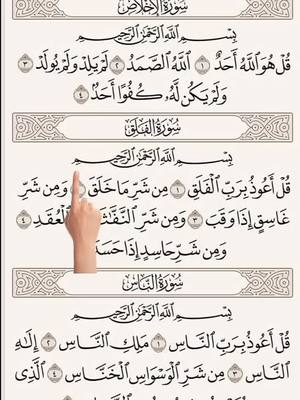 سُورَةُ الإِخْلَاصِ
بِسْمِ ٱللَّهِ ٱلرَّحْمَٰنِ ٱلرَّحِيمِ
قُلْ هُوَ ٱللَّهُ أَحَدٌ ١ ٱللَّهُ ٱلصَّمَدُ ٢ لَمْ يَلِدْ وَلَمْ يُولَدْ ٣
وَلَمْ يَكُن لَّهُۥ كُفُوًا أَحَدٌۢ ٤
سُورَةُ الفَلَقِ
بِسْمِ ٱللَّهِ ٱلرَّحْمَٰنِ ٱلرَّحِيمِ
قُلْ أَعُوذُ بِرَبِّ ٱلْفَلَقِ ١ مِن شَرِّ مَا خَلَقَ وَمِن شَرِّ
غَاسِقٍ إِذَا وَقَبَ ٣ وَمِن شَرِّ ٱلنَّفَّٰثَٰ ٱلْعُقَدِ ٤
وَمِن شَرِّ حَاسِدٍ إِذَا حَسَدَ
سُورَةُ النَّاسِ
بِسْمِ ٱللَّهِ ٱلرَّحْمَٰنِ ٱلرَّحِيمِ
قُلْ أَعُوذُ بِرَبِّ ٱلنَّاسِ ١ مَلِكِ ٱلنَّاسِ ٢ إِلَٰهِ
ٱلنَّاسِ ٣ مِن شَرِّ ٱلْوَسْوَاسِ ٱلْخَنَّاسِ ٤ ٱلَّذِى